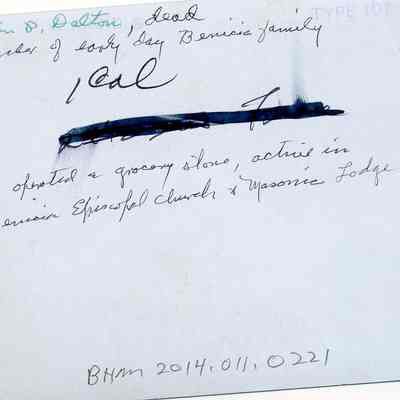 TYPE 101
D. Dalton, dead
of early day Benicia family
1 Col
operated a grocery store, active in
Episcopal Church & Masonic Lodge
BHM 2014.011.0221